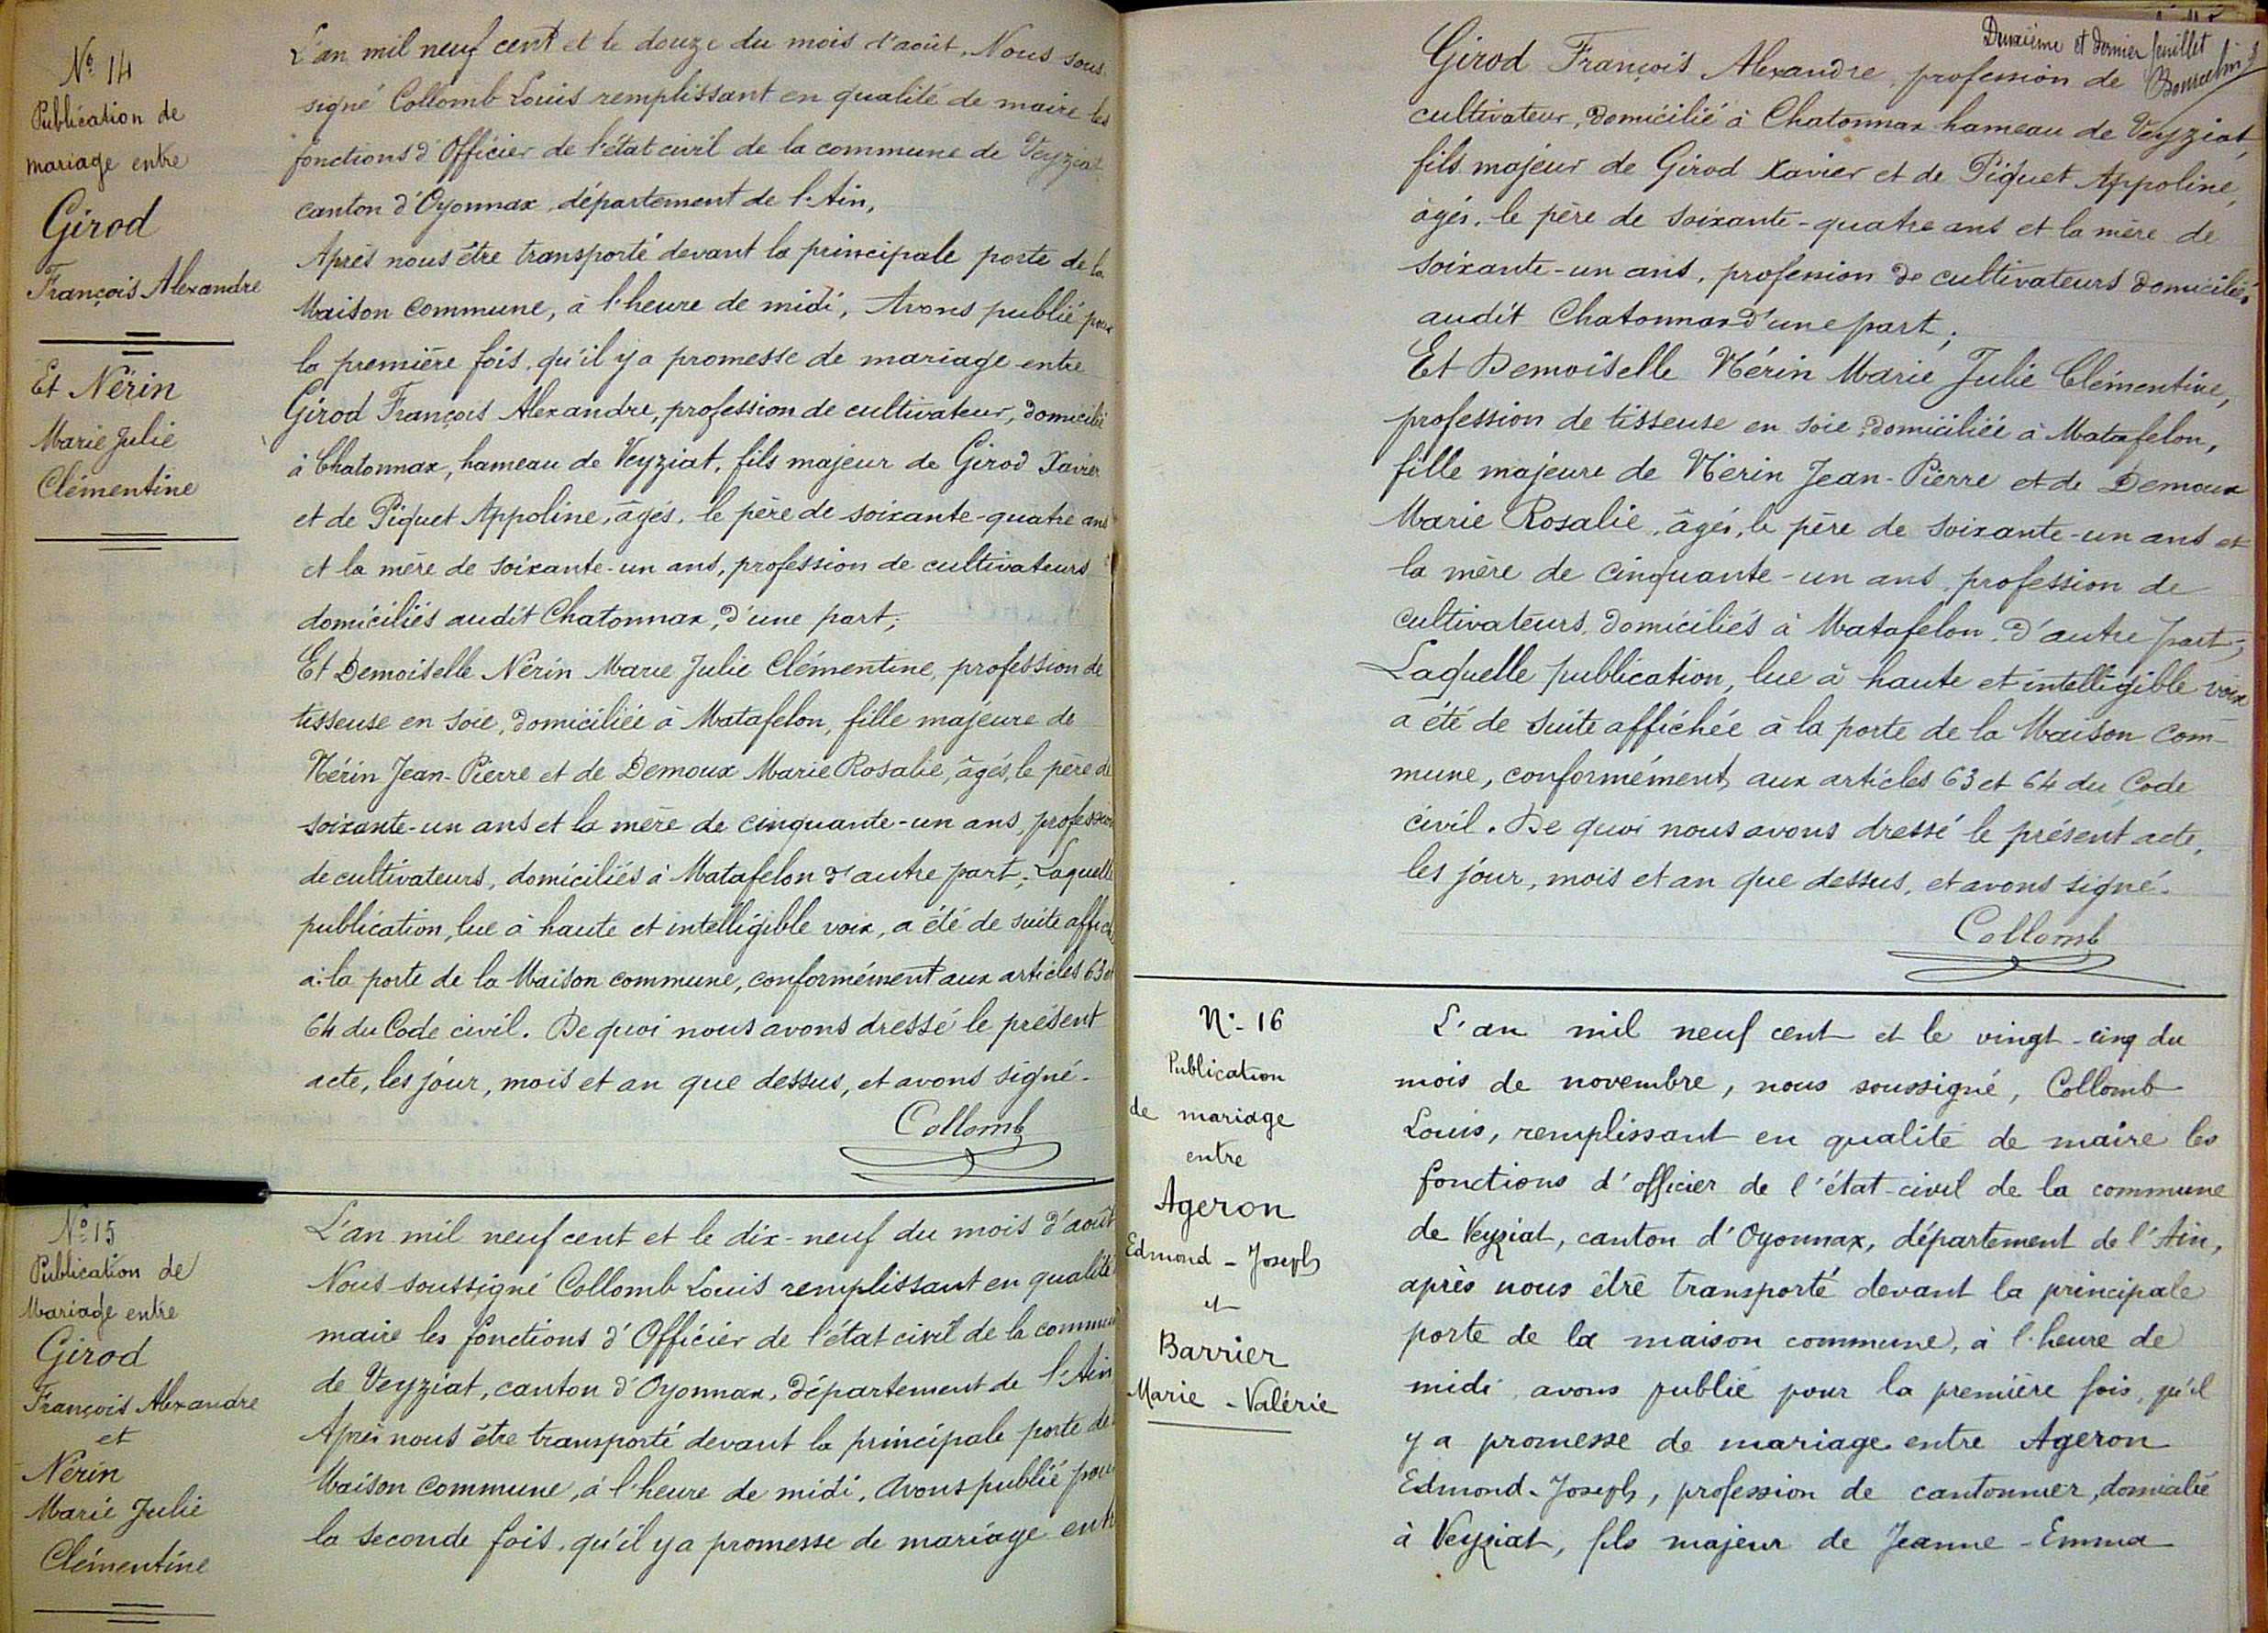 N° 14
Publication de
mariage entre
Girod
François Alexandre
Et Nérin
Marie Julie
Clémentine
L'an mil neuf cent et le douze du mois d'août. Nous sous-
signé Collomb Louis remplissant en qualité de maire les
fonctions d'Officier de l'état civil de la commune de Veyziat
canton d'Oyonnax, département de l'Ain,
Après nous être transporté devant la principale porte de la
Maison commune, à l'heure de midi, Avons publié pour
la première fois, qu'il y a promesse de mariage entre
Girod François Alexandre, profession de cultivateur, domicilié
à Chatonnax, hameau de Veyziat, fils majeur de Girod Xavier
et de Piquet Appoline, âgés, le père de soixante-quatre ans
et la mère de soixante-un ans, profession de cultivateurs
domiciliés audit Chatonnax, d'une part;
Et Demoiselle Nérin Marie Julie Clémentine, profession de
tisseuse en soie, domiciliée à Matafelon, fille majeure de
Nérin Jean-Pierre et de Demoux Marie Rosalie, âgés, le père de
soixante-un ans et la mère de cinquante-un ans, profession
de cultivateurs, domiciliés à Matafelon d'autre part; Laquelle
publication, lue à haute et intelligible voix, a été de suite affich
à la porte de la Maison commune, conformément aux articles 63 et
64 du Code civil. De quoi nous avons dressé le présent
acte, les jour, mois et an que dessus, et avons signé.
Collomb
N° 15
Publication de
Mariage entre
Girod
François Alexandre
et
Nérin
Marie Julie
Clémentine
L'an mil neuf cent et le dix-neuf du mois d'août
Nous soussigné Collomb Louis remplissant en qualité
maire les fonctions d'Officier de l'état civil de la commun
de Veyziat, canton d'Oyonnax, département de l'Ain
Après nous être transporté devant la principale porte de
Maison commune, à l'heure de midi, Avons publié pour
la seconde fois, qu'il y a promesse de mariage entr
Deuxième et dernier feuillet
Girod François Alexandre, profession de
cultivateur, domicilié à Chatonnax hameau de Veyziat,
fils majeur de Girod Xavier et de Piquet Appoline,
âgés, le père de soixante-quatre ans et la mère de
soixante-un ans, profession de cultivateurs domiciliés
audit Chatonnax d'une part;
Et Demoiselle Nérin Marie Julie Clémentine,
profession de tisseuse en soie, domiciliée à Matafelon,
fille majeure de Nérin Jean-Pierre et de Demoux
Marie Rosalie, âgés, le père de soixante-un ans et
la mère de cinquante-un ans, profession de
cultivateurs, domiciliés à Matafelon, d'autre part;
Laquelle publication, lue à haute et intelligible voix
a été de suite affichée à la porte de la Maison com-
mune, conformément aux articles 63 et 64 du Code
civil. De quoi nous avons dressé le présent acte,
les jour, mois et an que dessus, et avons signé.
Collomb
N° 16
Publication
de mariage
entre
Ageron
Edmond-Joseph
et
Barrier
Marie-Valérie
L'an mil neuf cent et le vingt-cinq du
mois de novembre, nous soussigné, Collomb
Louis, remplissant en qualité de maire les
fonctions d'officier de l'état-civil de la commune
de Veyziat, canton d'Oyonnax, département de l'Ain,
après nous être transporté devant la principale
porte de la maison commune, à l'heure de
midi, avons publié pour la première fois, qu'il
y a promesse de mariage entre Ageron
Edmond-Joseph, profession de cantonnier, domicilié
à Veyziat, fils majeur de Jeanne-Emma